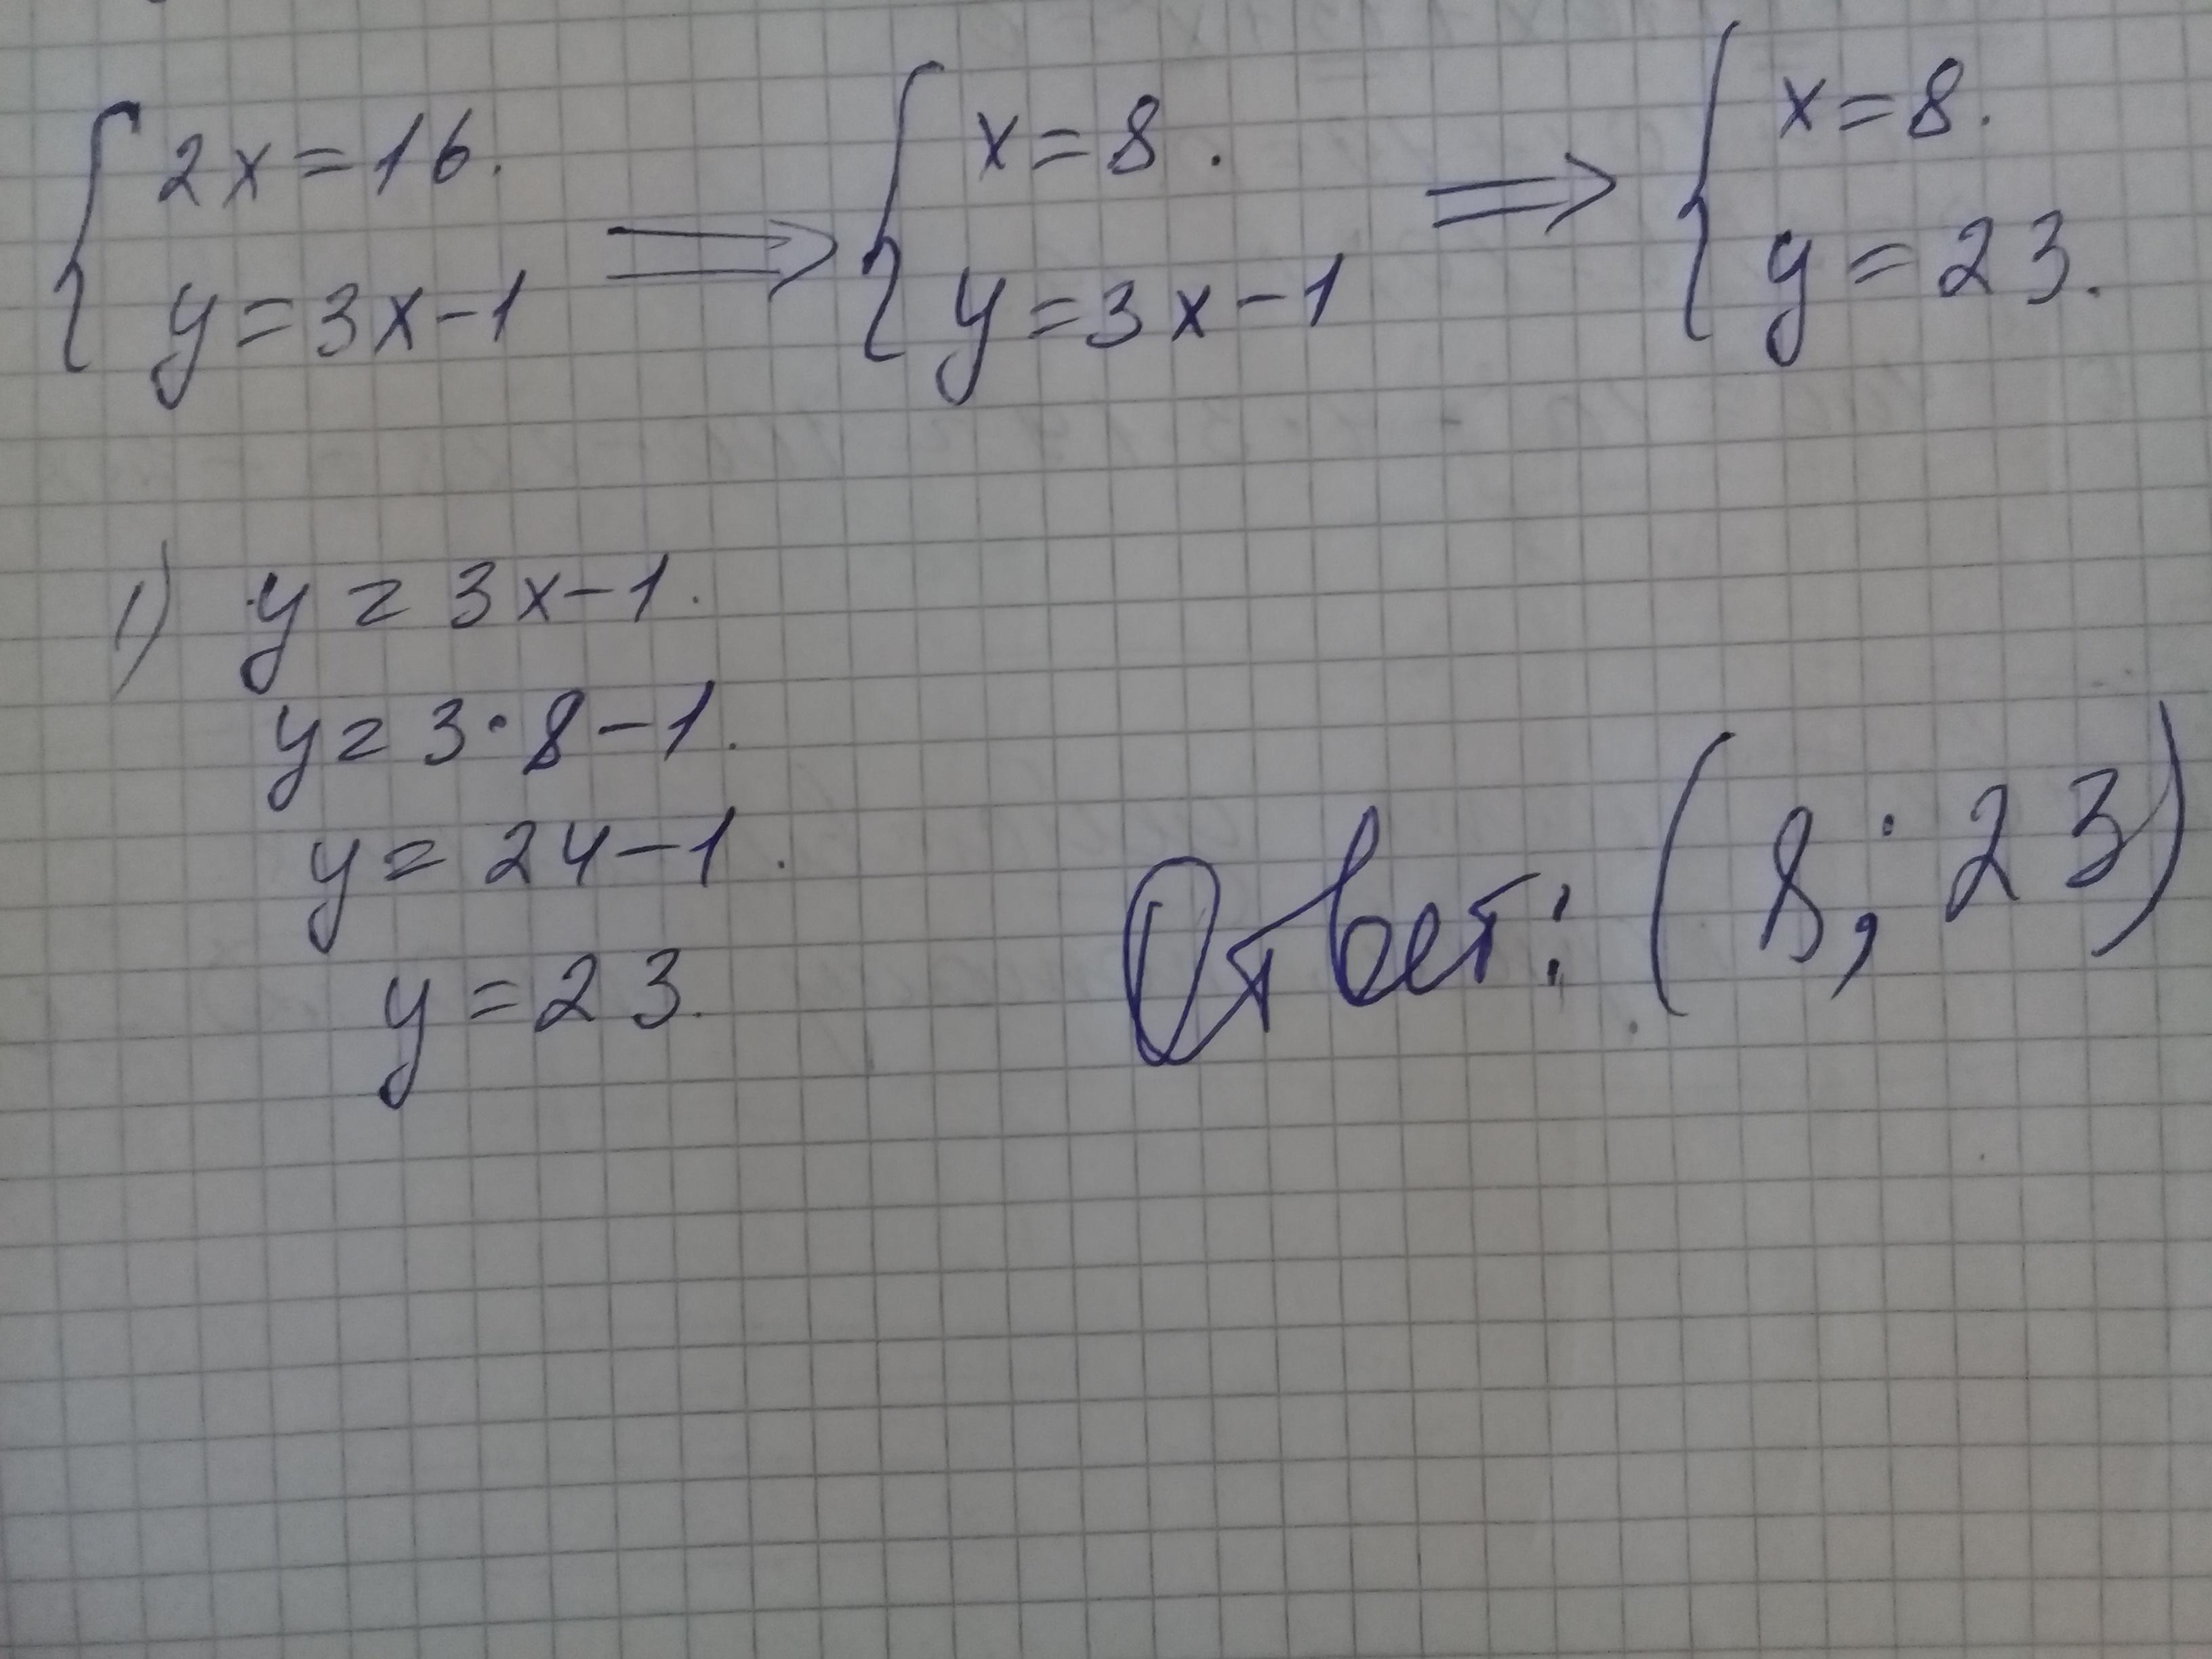 2x=16. ⟹ x=8. ⟹ x=8.
y=3x-1 y=3x-1 y=23.
1) y=3x-1.
y=3·8-1.
y=24-1.
y=23.
Ответ: (8; 23)